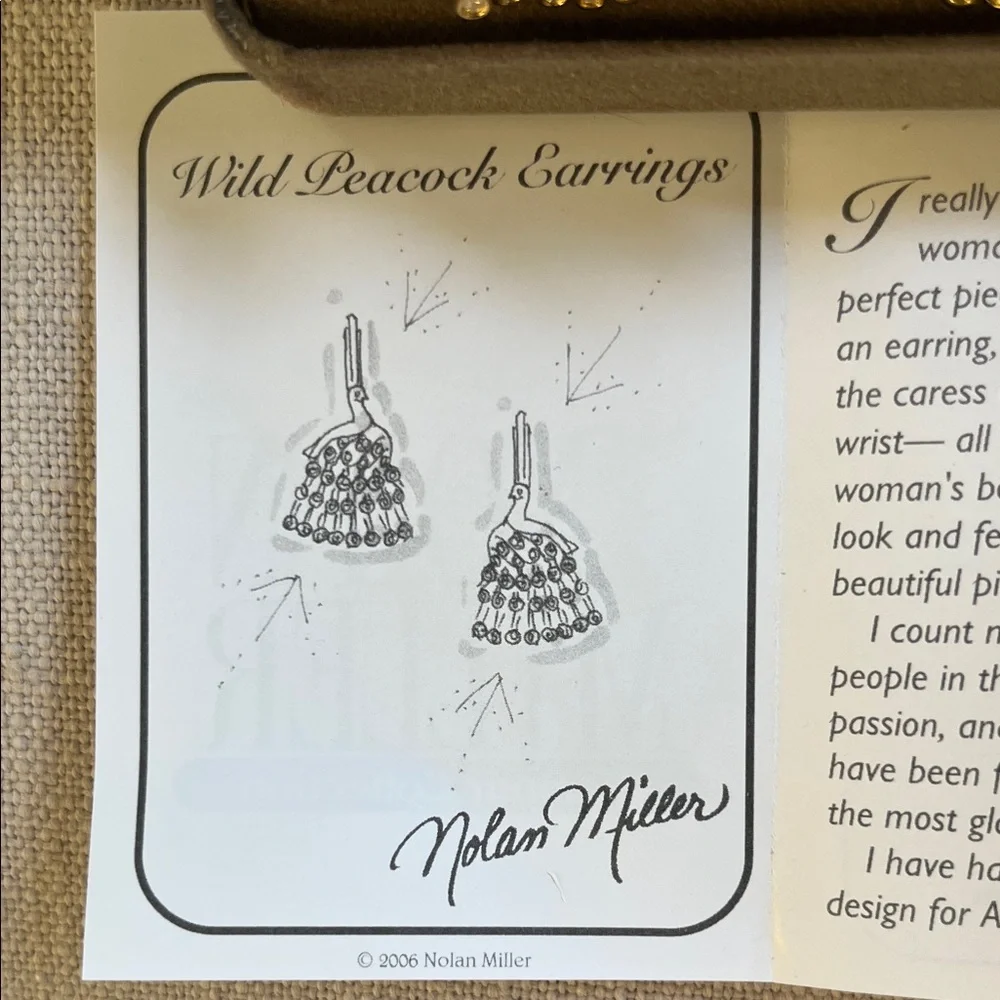 Wild Peacock Earrings
Nolan Miller
© 2006 Nolan Miller
I really
perfect
an earring,
the caress
wrist— all
woman's
look and
beautiful
I count
people in
passion,
have been
the most
I have
design for